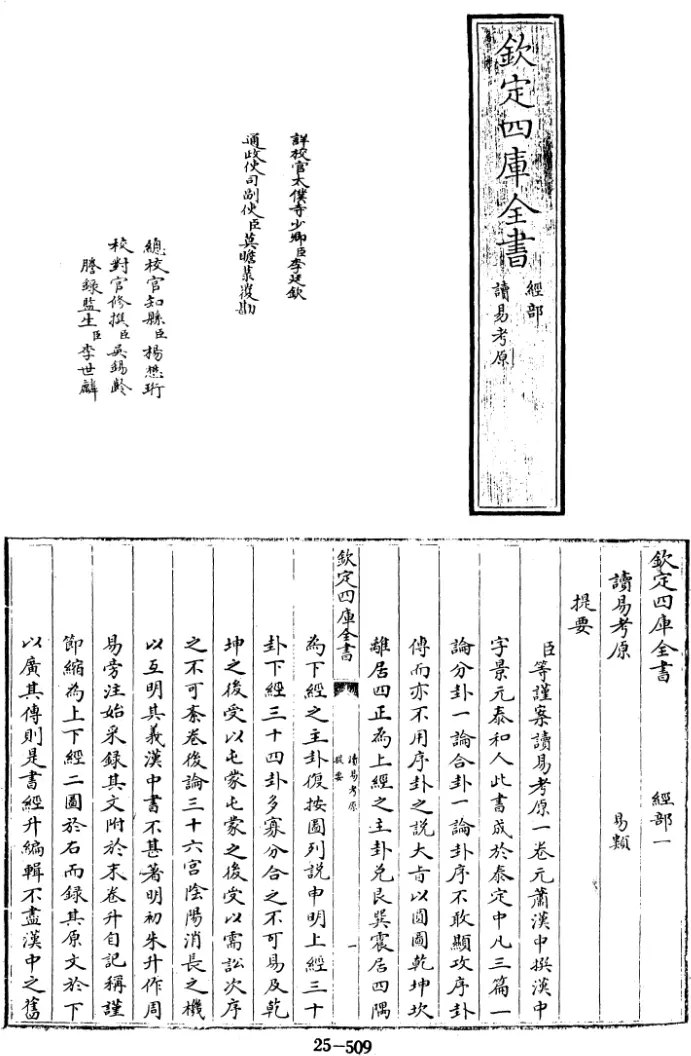 欽定四庫全書
經部
讀易考原
詳校官太僕寺少卿臣李廷欽
通政使司副使臣莫瞻菉覆勘
總校官知縣臣楊懋珩
校對官修撰臣吳錫齡
謄錄監生臣李世麟
欽定四庫全書 經部一
讀易考原 易類
提要
臣等謹案讀易考原一卷元蕭漢中撰漢中
字景元泰和人此書成於泰定中凡三篇一
論分卦一論合卦一論卦序不敢顯攻序卦
傳而亦不用序卦之說大旨以圓圖乾坤坎
離居四正為上經之主卦兌艮巽震居四隅
欽定四庫全書
讀易考原
提要
一
為下經之主卦復按圖列說申明上經三十
卦下經三十四卦多寡分合之不可易及乾
坤之後受以屯蒙屯蒙之後受以需訟次序
之不可紊卷後論三十六宮陰陽消長之機
以互明其義漢中書不甚著明初朱升作周
易旁注始采錄其文附於末卷升自記稱謹
節縮為上下經二圖於右而錄其原文於下
以廣其傳則是書經升編輯不盡漢中之舊
25-509